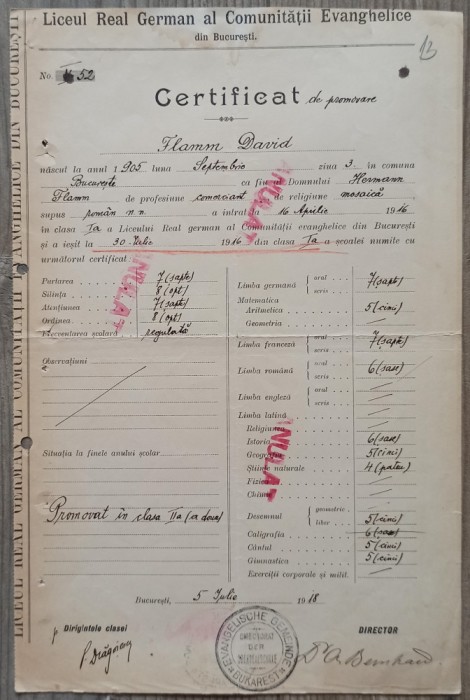 Liceul Real German al Comunității Evanghelice
din București.
13
No. 52
Certificat de promovare
Flamm David
născut la anul 1905 luna Septembrie ziua 3. în comuna
București ca fiu al Domnului Hermann
Flamm de profesiune comerciant de religiune mosaică
supus român n.n. a intrat la 16 Aprilie 1916
în clasa Ia a Liceului Real german al Comunității evanghelice din București
și a ieșit la 30. Iulie 1916 din clasa Ia a școalei numite cu
următorul certificat:
Purtarea 7 (șapte)
Silința 8 (opt)
Atențiunea 7 (șapte)
Ordinea 8 (opt)
Frecventarea școlară regulată
Observațiuni
Situația la finele anului școlar
Promovat în clasa IIa (a doua)
Limba germană oral scris 7 (șapte)
Matematica
Aritmetica 5 (cinci)
Geometria
Limba franceză oral scris 7 (șapte)
Limba română oral scris 6 (șase)
Limba engleză oral scris
Limba latină
Religiunea
Istoria 6 (șase)
Geografia 5 (cinci)
Științe naturale 4 (patru)
Fizica
Chimia
Desemnul geometric liber 5 (cinci)
Caligrafia 6 (șase)
Cântul 5 (cinci)
Gimnastica 5 (cinci)
Exerciții corporale și milit.
București, 5 Iulie 1918
p Dirigintele clasei
DIRECTOR
Dr. A. Bernhard
EVANGELISCHE GEMEINDE
BUKAREST
DIRECTORAT
DER
ANULAT
ANULAT
ANULAT
LICEUL REAL GERMAN AL COMUNITĂȚII EVANGHELICE DIN BUCUREȘTI